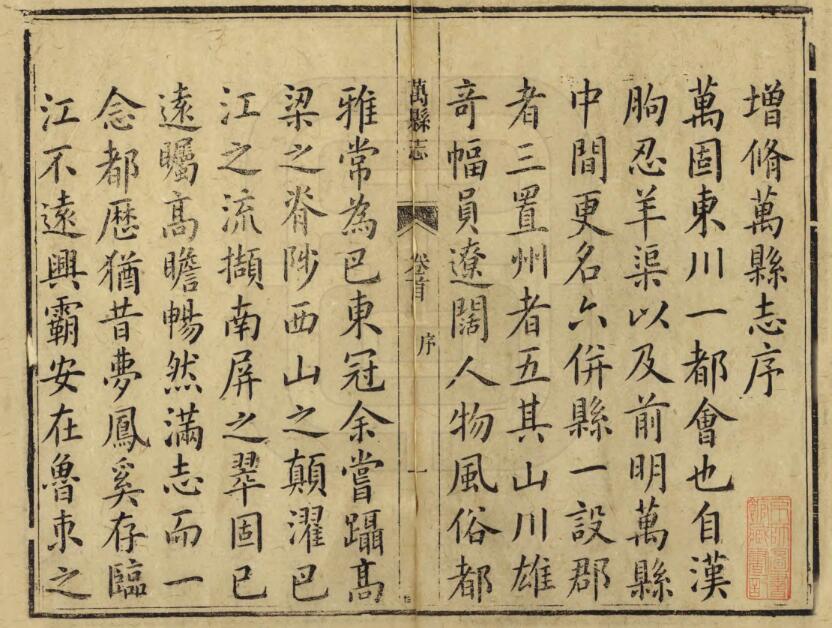 增脩萬縣志序
萬固東川一都會也自漢
朐忍羊渠以及前明萬縣
中間更名六併縣一設郡
者三置州者五其山川雄
竒幅員遼闊人物風俗都
萬縣志
卷首
序
一
雅常為巴東冠余嘗躡高
梁之脊陟西山之顛濯巴
江之流擷南屏之翠固已
遠矚高瞻暢然滿志而一
念都歷猶昔夢鳳奚存臨
江不遠興霸安在魯朿之